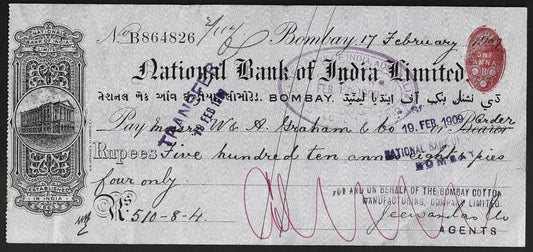 No. B864826 Bombay 17 February 1909
National Bank of India Limited
BOMBAY. دی نشنل بنک آف اینڈیا لیمیٹیڈ
TRANSFER
19 FEB 1909
Pay Messrs W & A. Graham & Co or Bearer Order
19. FEB. 1909
NATIONAL BANK
BOMBAY
Rupees Five hundred ten annas eight & pies
four only.
Rs. 510-8-4.
FOR AND ON BEHALF OF THE BOMBAY COTTON
MANUFACTURING, COMPANY LIMITED.
Jeewandas & Co
AGENTS
NATIONAL BANK
INDIA
ESTABLISHED
IN INDIA
ONE ANNA